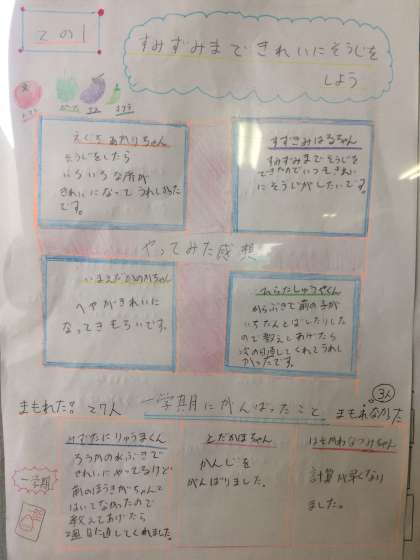 2の1
すみずみまできれいにそうじを
しよう
トマト
ピーマン
ナス
オクラ
えぐちあかりちゃん
そうじをしたら
いろいろな所が
きれいになってうれしかった
です。
すずきみはるちゃん
すみずみまでそうじを
できたのでいつもきれい
にそうじがしたいです。
やってみた感想
いまえだかのかちゃん
へやがきれいに
なってきもちいです。
からぶきで前の子が
いちだんとばしたりした
ので教えてあげたら
次の日直してくれてうれし
かったです。
まもれた? 27人
一学期にがんばったこと
3人
まもれなかった
りゅうまくん
ろうかの水ぶきで
きれいにやってるけど
前のほうきがちゃんと
はいてなかったので
教えてあげたら
直してくれました。
とだかほちゃん
かんじを
がんばりました。
はせがわなつけちゃん
計算が早くなり
ました。
一学期